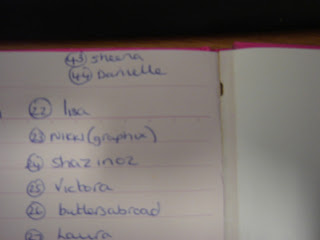 43 Sheena
44 Danielle
22 lisa
23 Nikki (graphix)
24 Shazinoz
25 Victora
26 butlersabroad
27 Laura